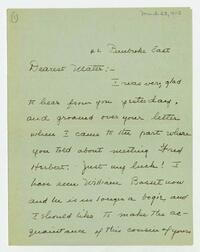 ①
March 23, 1913
42 Pembroke East
Dearest Mater:-
I was very glad
to hear from you yesterday,
and groaned over your letter
when I came to the part where
you told about meeting Fred
Herbert. Just my luck! I
have seen William Basset now
and he is no longer a boy, and
I should like to make the ac-
quaintance of this cousin of yours